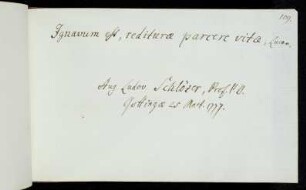 109.
Ignavum est, rediturae parcere vitae, Lucan.
Aug Ludov Schlözer, Prof. P. O.
Gottingae 25 177